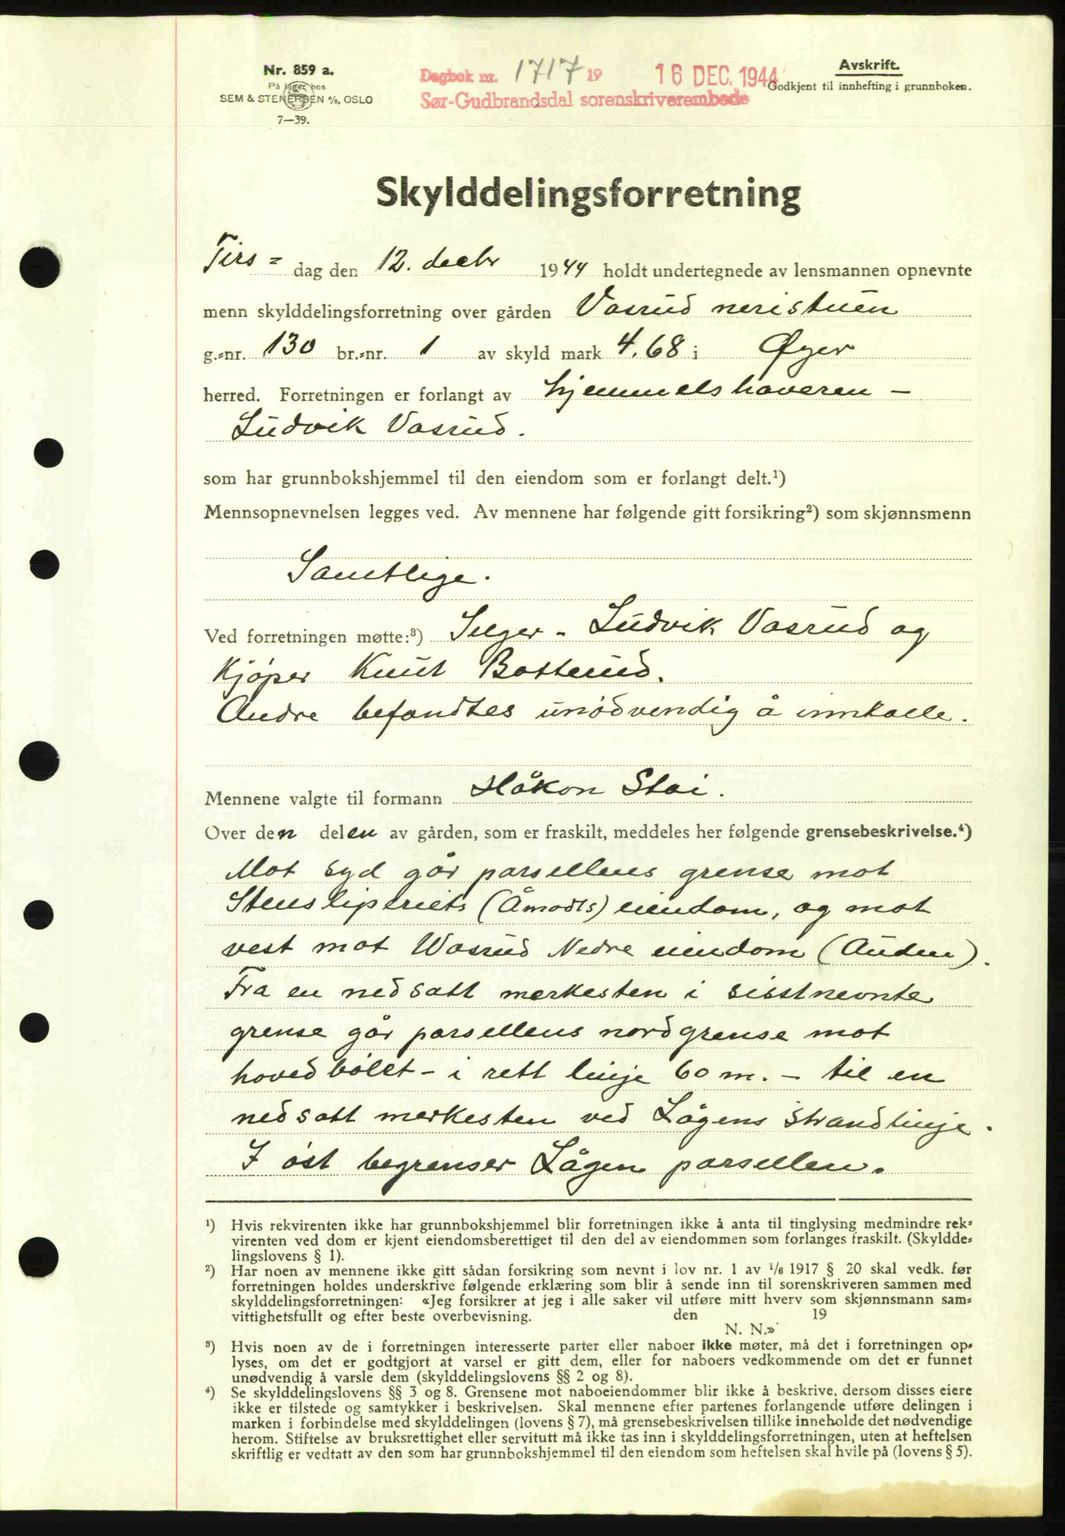 Nr. 859 a.
På lager hos
SEM & STENERSEN A/S, OSLO
7—39.
Dagbok nr. 1717 19 16 DEC. 1944
Sør-Gudbrandsdal sorenskriverembede
Avskrift.
Godkjent til innhefting i grunnboken.
Skylddelingsforretning
Tirs= dag den 12. decbr 1944 holdt undertegnede av lensmannen opnevnte
menn skylddelingsforretning over gården Vasrud neristuen
g.=nr. 130 br.=nr. 1 av skyld mark 4.68 i Øyer
herred. Forretningen er forlangt av hjemmelshaveren –
Ludvik Vasrud.
som har grunnbokshjemmel til den eiendom som er forlangt delt.¹)
Mennsopnevnelsen legges ved. Av mennene har følgende gitt forsikring²) som skjønnsmenn
Samtlige.
Ved forretningen møtte:³) Selger – Ludvik Vasrud og
Kjøper Knut Botterud.
Andre befandtes unødvendig å innkalle.
Mennene valgte til formann Håkon Stai.
Over den delen av gården, som er fraskilt, meddeles her følgende grensebeskrivelse.⁴)
Mot syd går parsellens grense mot
Stensliperiets (Åmodts) eiendom, og mot
vest mot Wasrud Nedre eiendom (Auden).
Fra en nedsatt merkesten i sisstnevnte
grense går parsellens nordgrense mot
hovedbølet – i rett linje 60 m. – til en
nedsatt merkesten ved Lågens strandlinje.
I øst begrenser Lågen parsellen.
¹) Hvis rekvirenten ikke har grunnbokshjemmel blir forretningen ikke å anta til tinglysing medmindre rek=
virenten ved dom er kjent eiendomsberettiget til den del av eiendommen som forlanges fraskilt. (Skyldde=
lingslovens § 1).
²) Har noen av mennene ikke gitt sådan forsikring som nevnt i lov nr. 1 av ¹/₆ 1917 § 20 skal vedk. før
forretningen holdes underskrive følgende erklæring som blir å sende inn til sorenskriveren sammen med
skylddelingsforretningen: «Jeg forsikrer at jeg i alle saker vil utføre mitt hverv som skjønnsmann sam=
vittighetsfullt og efter beste overbevisning. den 19
N. N.»
³) Hvis noen av de i forretningen interesserte parter eller naboer ikke møter, må det i forretningen op=
lyses, om det er godtgjort at varsel er gitt dem, eller for naboers vedkommende om det er funnet
unødvendig å varsle dem (skylddelingslovens §§ 2 og 8).
⁴) Se skylddelingslovens §§ 3 og 8. Grensene mot naboeiendommer blir ikke å beskrive, dersom disses eiere
ikke er tilstede og samtykker i beskrivelsen. Skal mennene efter partenes forlangende utføre delingen i
marken i forbindelse med skylddelingen (lovens § 7), må grensebeskrivelsen tillike inneholde det nødvendige
herom. Stiftelse av bruksrettighet eller servitutt må ikke tas inn i skylddelingsforretningen, uten at heftelsen
skriftlig er vedtatt av den som har grunnbokshjemmel til den eiendom som heftelsen skal hvile på (lovens § 5).